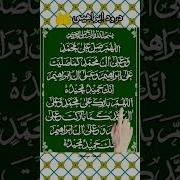 درود ابراھیمی
بسم اللہ الرحمن الرحیم
اللھم صل علی محمد
وعلی آل محمد کما صلیت
علی ابراھیم وعلی آل ابراھیم
انک حمید مجید
اللھم بارک علی محمد وعلی
آل محمد کما بارکت علی
ابراھیم وعلی آل ابراھیم
انک حمید مجید